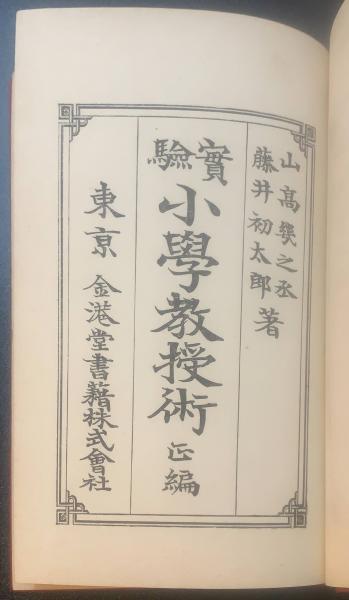 山高幾之丞
藤井初太郎
著
實驗
小學教授術 正編
東京 金港堂書籍株式會社